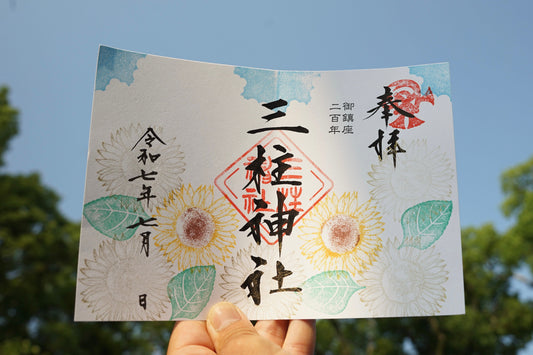 奉拝
御鎮座
二百年
三柱神社
令和七年七月 日